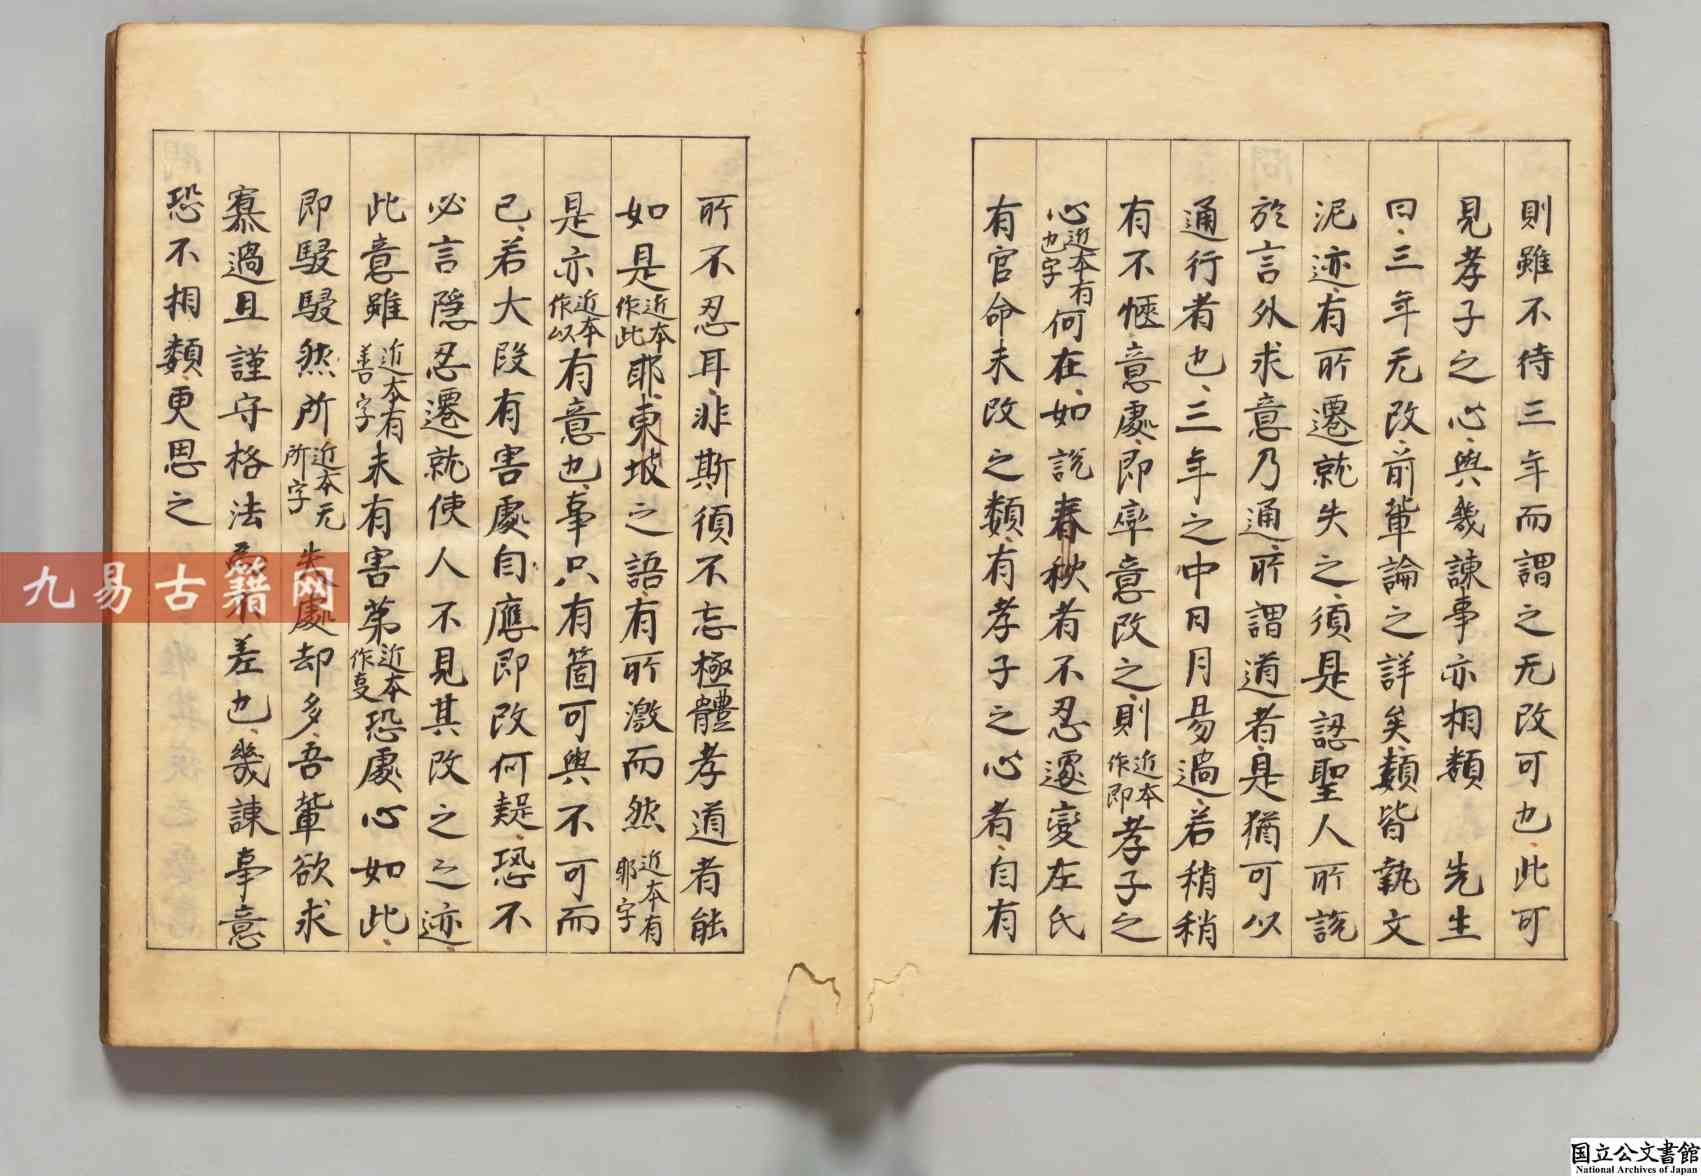 則雖不待三年而謂之无改可也此可
見孝子之心與幾諫事亦相類　先生
曰三年无改前輩論之詳矣類皆執文
泥迹有所遷就失之須是認聖人所說
於言外求意乃通所謂道者是猶可以
通行者也三年之中日月易過若稍稍
有不愜意處即率意改之則近本作即孝子之
心近本有也字何在如說春秋者不忍遽變左氏
有官命未改之類有孝子之心者自有
所不忍耳非斯須不忘極體孝道者能
如是近本作此耶東坡之語有所激而然近本有耶字
是亦近本作以有意也事只有箇可與不可而
已若大段有害處自應即改何疑恐不
必言隱忍遷就使人不見其改之之迹
此意雖近本有善字未有害第近本作更恐處心如此
即駸駸然所近本无所字失處却多吾輩欲求
寡過且謹守格法爲不差也幾諫事意
恐不相類更思之
九易古籍网
国立公文書館
National Archives of Japan